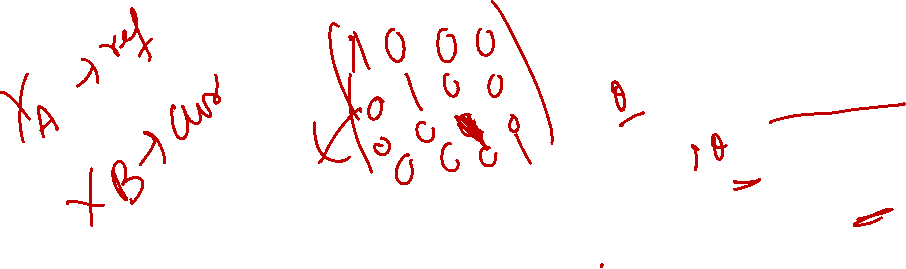 X_A → ref
X_B → curr
1 0 0 0
0 1 0 0
0 0 0
0 0 0 1
θ
1 θ